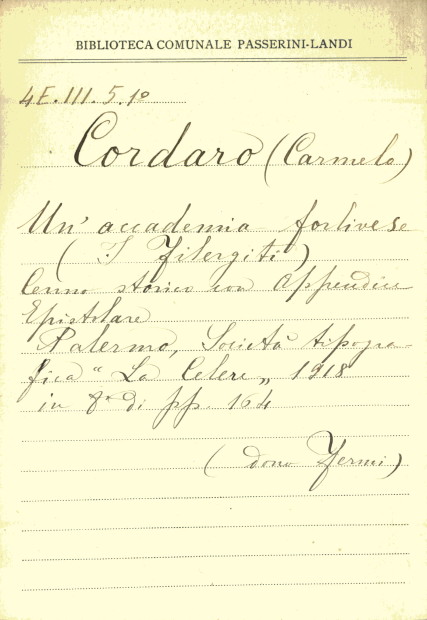 BIBLIOTECA COMUNALE PASSERINI-LANDI
4E.III.5.1º
Cordaro (Carmelo)
Un' accademia forlivese
( I Filergiti )
Cenno storico con Appendice
Epistolare
Palermo, Società tipogra-
fica "La Celere„ 1918
in 8º di pp. 164
(dono Fermi)